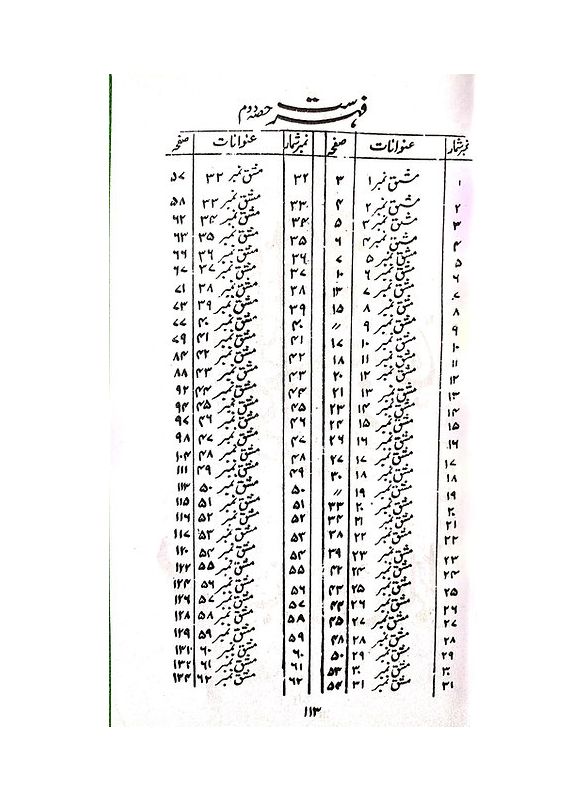 فہرست حصہ دوم
نمبر شمار عنوانات صفحہ نمبر شمار عنوانات صفحہ
۱ مشق نمبر ۱ ۳ ۳۲ مشق نمبر ۳۲ ۵۷
۲ مشق نمبر ۲ ۴ ۳۳ مشق نمبر ۳۳ ۵۸
۳ مشق نمبر ۳ ۵ ۳۴ مشق نمبر ۳۴ ۶۲
۴ مشق نمبر ۴ ۶ ۳۵ مشق نمبر ۳۵ ۶۳
۵ مشق نمبر ۵ ۷ ۳۶ مشق نمبر ۳۶ ۶۶
۶ مشق نمبر ۶ ۱۰ ۳۷ مشق نمبر ۳۷ ۶۷
۷ مشق نمبر ۷ ۱۳ ۳۸ مشق نمبر ۳۸ ۷۱
۸ مشق نمبر ۸ ۱۵ ۳۹ مشق نمبر ۳۹ ۷۳
۹ مشق نمبر ۹ 〃 ۴۰ مشق نمبر ۴۰ ۷۷
۱۰ مشق نمبر ۱۰ ۱۷ ۴۱ مشق نمبر ۴۱ ۷۹
۱۱ مشق نمبر ۱۱ ۱۸ ۴۲ مشق نمبر ۴۲ ۸۴
۱۲ مشق نمبر ۱۲ ۲۰ ۴۳ مشق نمبر ۴۳ ۸۸
۱۳ مشق نمبر ۱۳ ۲۱ ۴۴ مشق نمبر ۴۴ ۹۲
۱۴ مشق نمبر ۱۴ ۲۳ ۴۵ مشق نمبر ۴۵ ۹۴
۱۵ مشق نمبر ۱۵ ۲۴ ۴۶ مشق نمبر ۴۶ ۹۷
۱۶ مشق نمبر ۱۶ ۲۶ ۴۷ مشق نمبر ۴۷ ۹۸
۱۷ مشق نمبر ۱۷ ۲۷ ۴۸ مشق نمبر ۴۸ ۱۰۴
۱۸ مشق نمبر ۱۸ ۳۰ ۴۹ مشق نمبر ۴۹ ۱۱۱
۱۹ مشق نمبر ۱۹ 〃 ۵۰ مشق نمبر ۵۰ ۱۱۳
۲۰ مشق نمبر ۲۰ ۳۳ ۵۱ مشق نمبر ۵۱ ۱۱۵
۲۱ مشق نمبر ۲۱ ۳۴ ۵۲ مشق نمبر ۵۲ ۱۱۶
۲۲ مشق نمبر ۲۲ ۳۸ ۵۳ مشق نمبر ۵۳ ۱۱۷
۲۳ مشق نمبر ۲۳ ۳۹ ۵۴ مشق نمبر ۵۴ ۱۲۰
۲۴ مشق نمبر ۲۴ ۴۲ ۵۵ مشق نمبر ۵۵ ۱۲۲
۲۵ مشق نمبر ۲۵ ۴۳ ۵۶ مشق نمبر ۵۶ ۱۲۴
۲۶ مشق نمبر ۲۶ ۴۴ ۵۷ مشق نمبر ۵۷ ۱۲۶
۲۷ مشق نمبر ۲۷ ۴۵ ۵۸ مشق نمبر ۵۸ ۱۲۸
۲۸ مشق نمبر ۲۸ ۴۸ ۵۹ مشق نمبر ۵۹ ۱۲۹
۲۹ مشق نمبر ۲۹ ۵۰ ۶۰ مشق نمبر ۶۰ ۱۳۱
۳۰ مشق نمبر ۳۰ ۵۳ ۶۱ مشق نمبر ۶۱ ۱۳۲
۳۱ مشق نمبر ۳۱ ۵۴ ۶۲ مشق نمبر ۶۲ ۱۳۴
۱۱۳